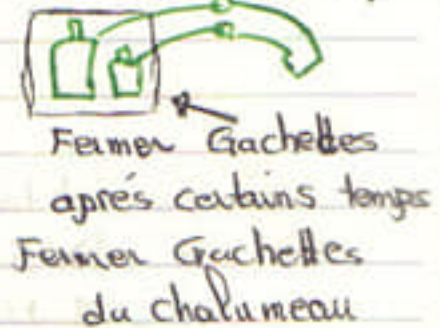 Fermer Gachettes
aprés certains temps
Fermer Gachettes
du chalumeau